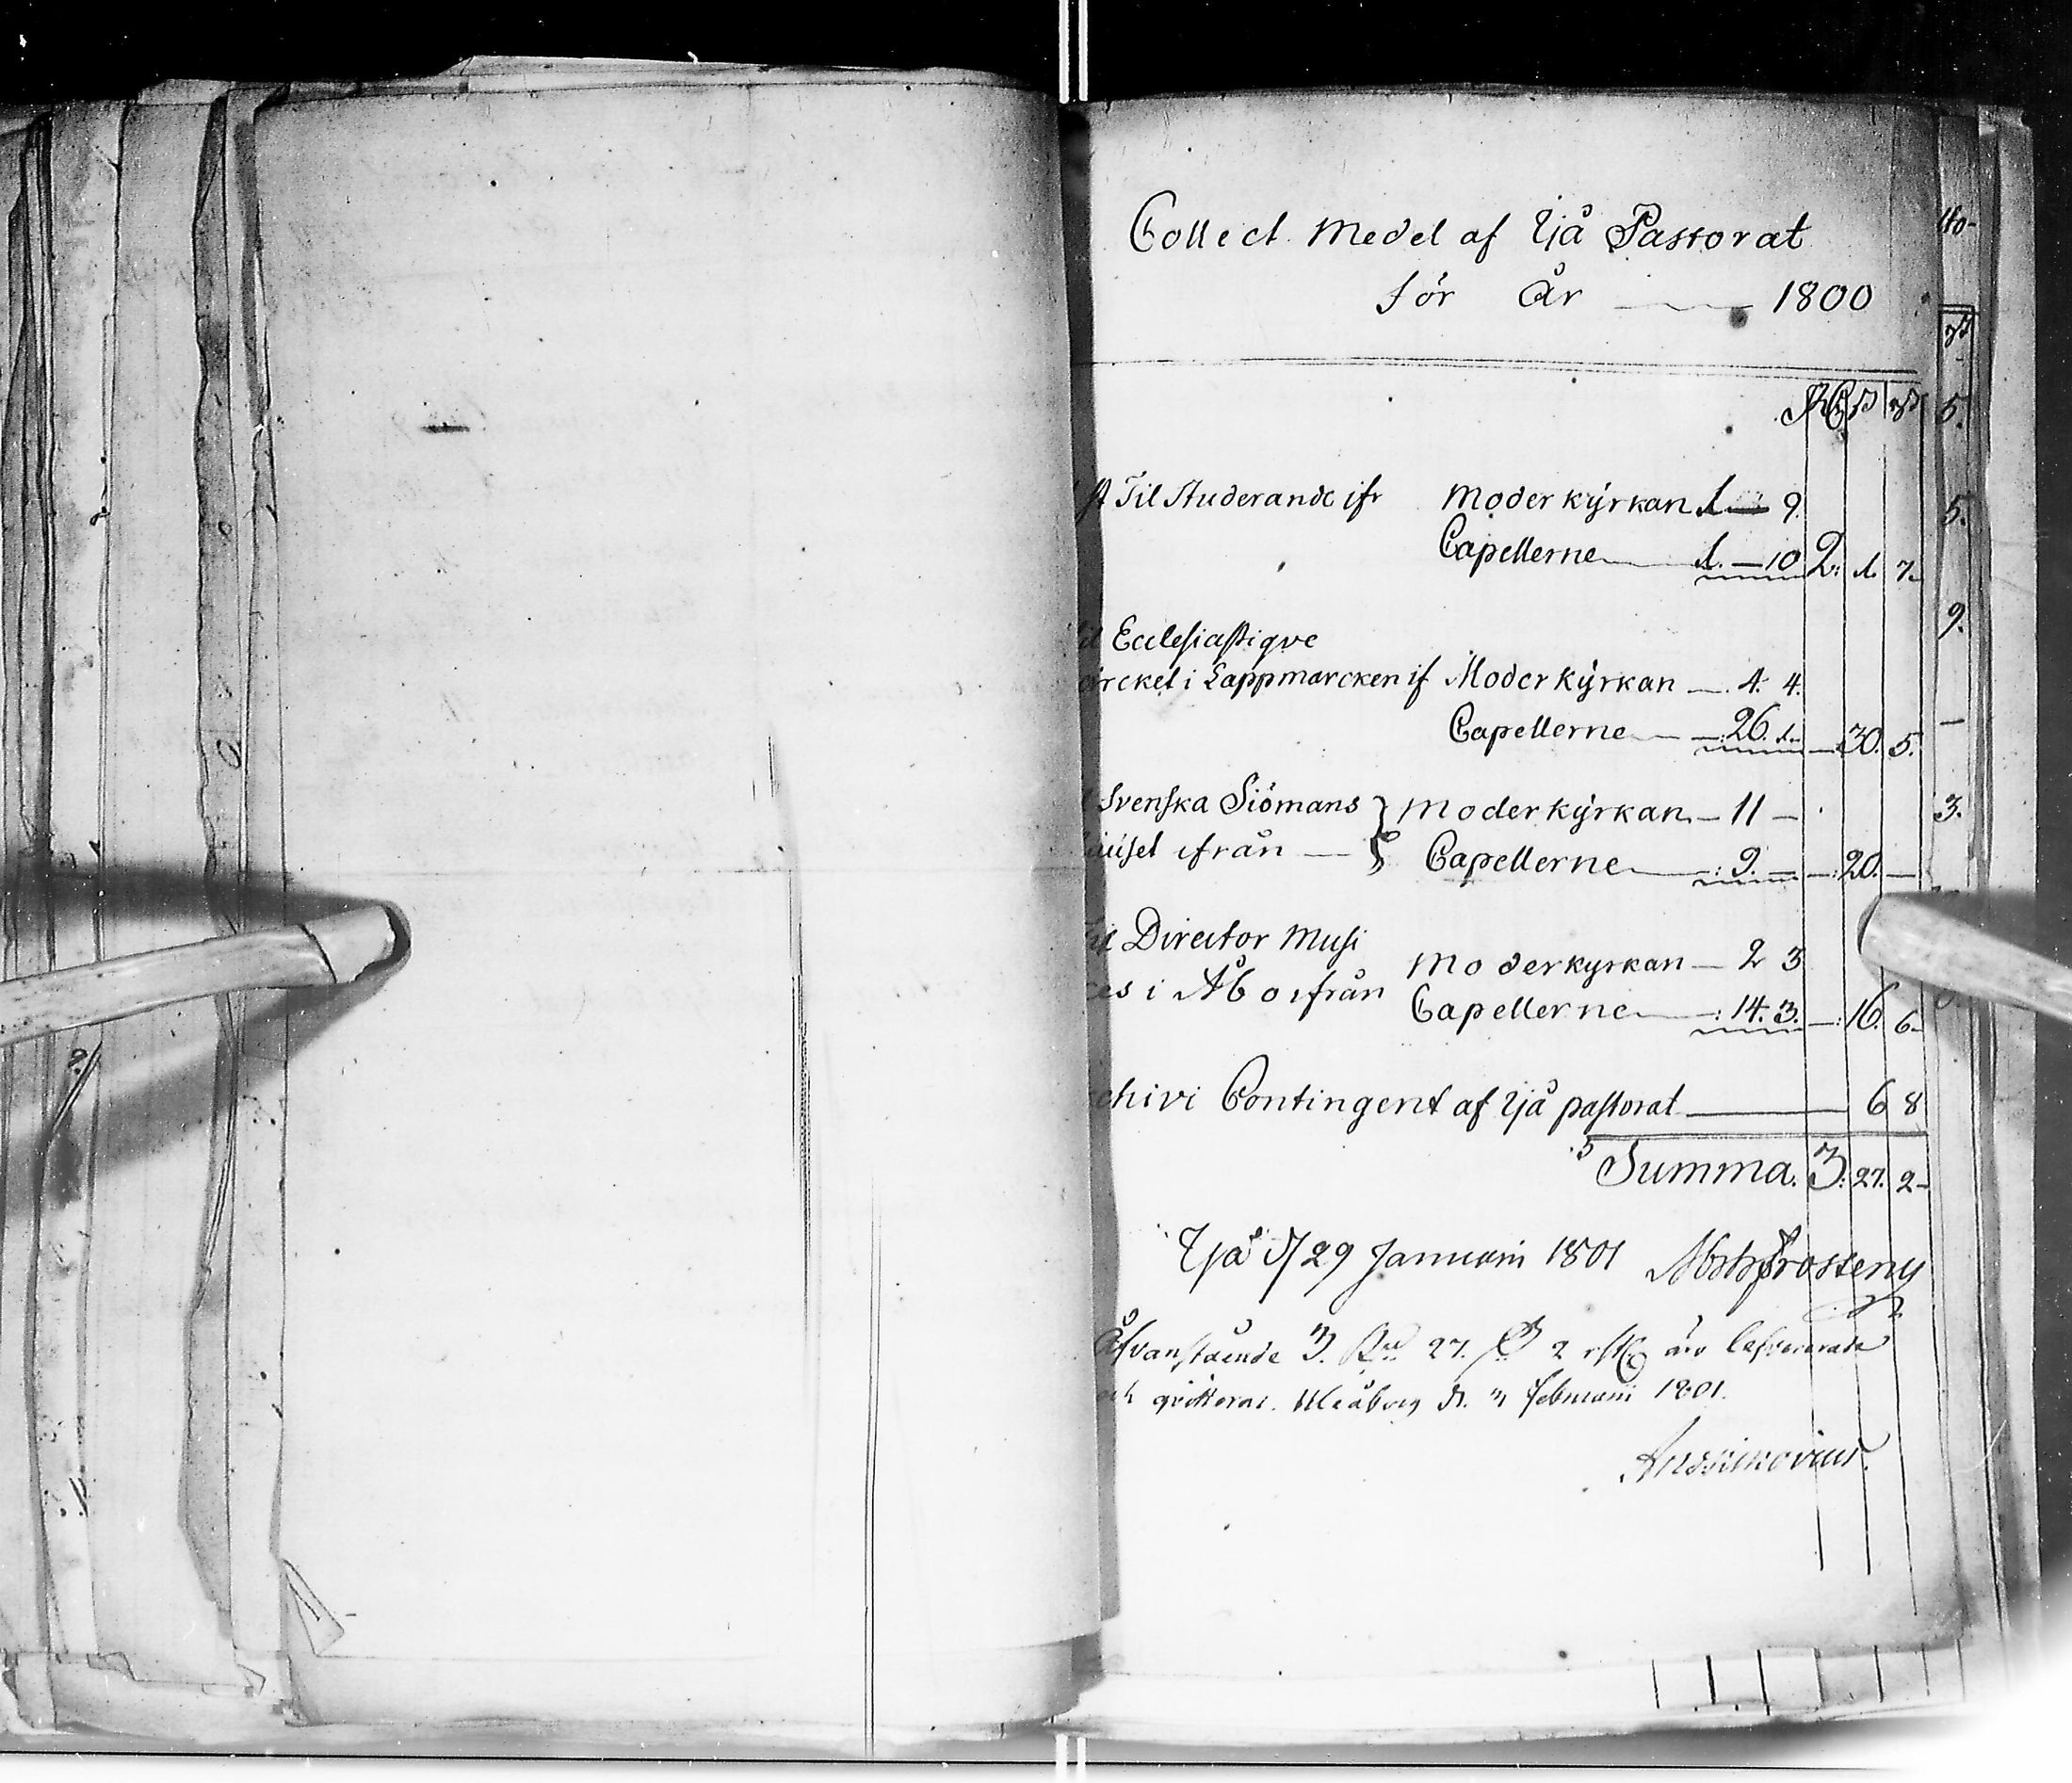 Collect. Medel af Ijå Pastorat
för År — 1800
st Til Studerande ifr Moderkÿrkan 1 — 9.
Capellerne — 1. — 10 2. 1. 7.
Ecclesiastiqve
i Lappmarcken if Moderkÿrkan — 4. 4.
Capellerne — 26. 1. — 30. 5.
Svenska Siömans } Moderkÿrkan — 11 —
ifrån — } Capellerne — 9. — 20. —
Director Musi
ces i Åbo ifrån Moderkyrkan — 2 3
Capellerne — 14. 3. — 16. 6.
chivi Contingent af Ijå pastorat — 6 8
Summa. 3. 27. 2
Ijå d 29 Januarii 1801
Åfvanstående 3. Rd 27. s 2 äro lefvererade
qvitteras. Uleåborg d. 3 Februarii 1801.